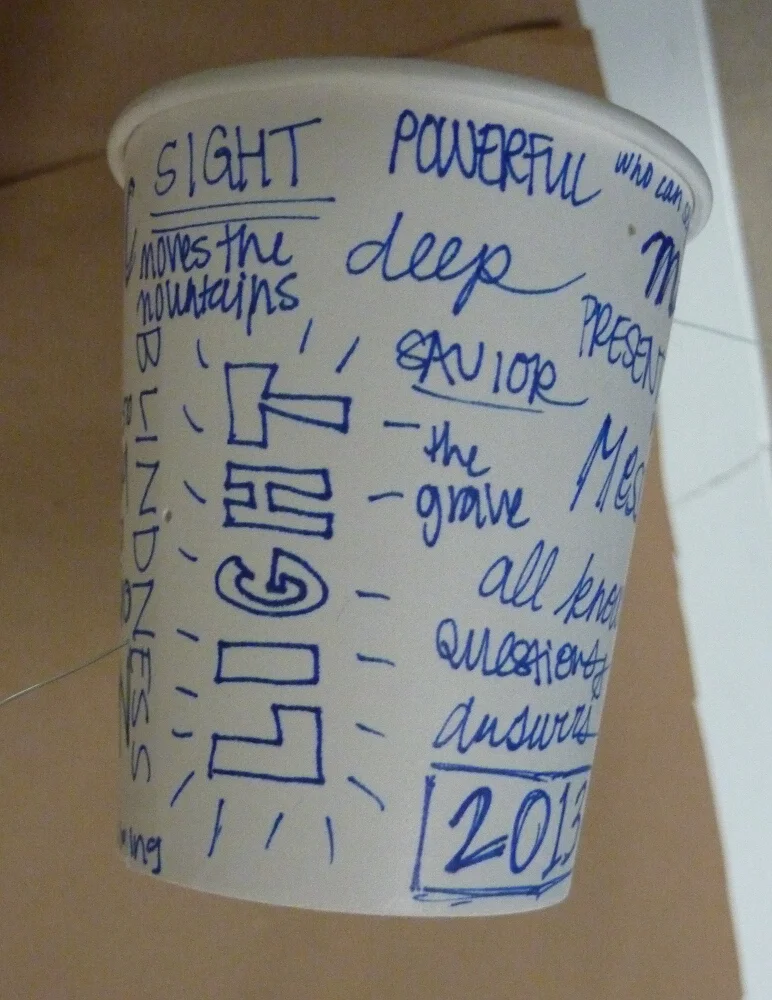 SIGHT
POWERFUL
who can
moves the
mountains
deep
PRESENT
BLINDNESS
LIGHT
SAVIOR
the
grave
Mes
all know
Questions
answrs
2013